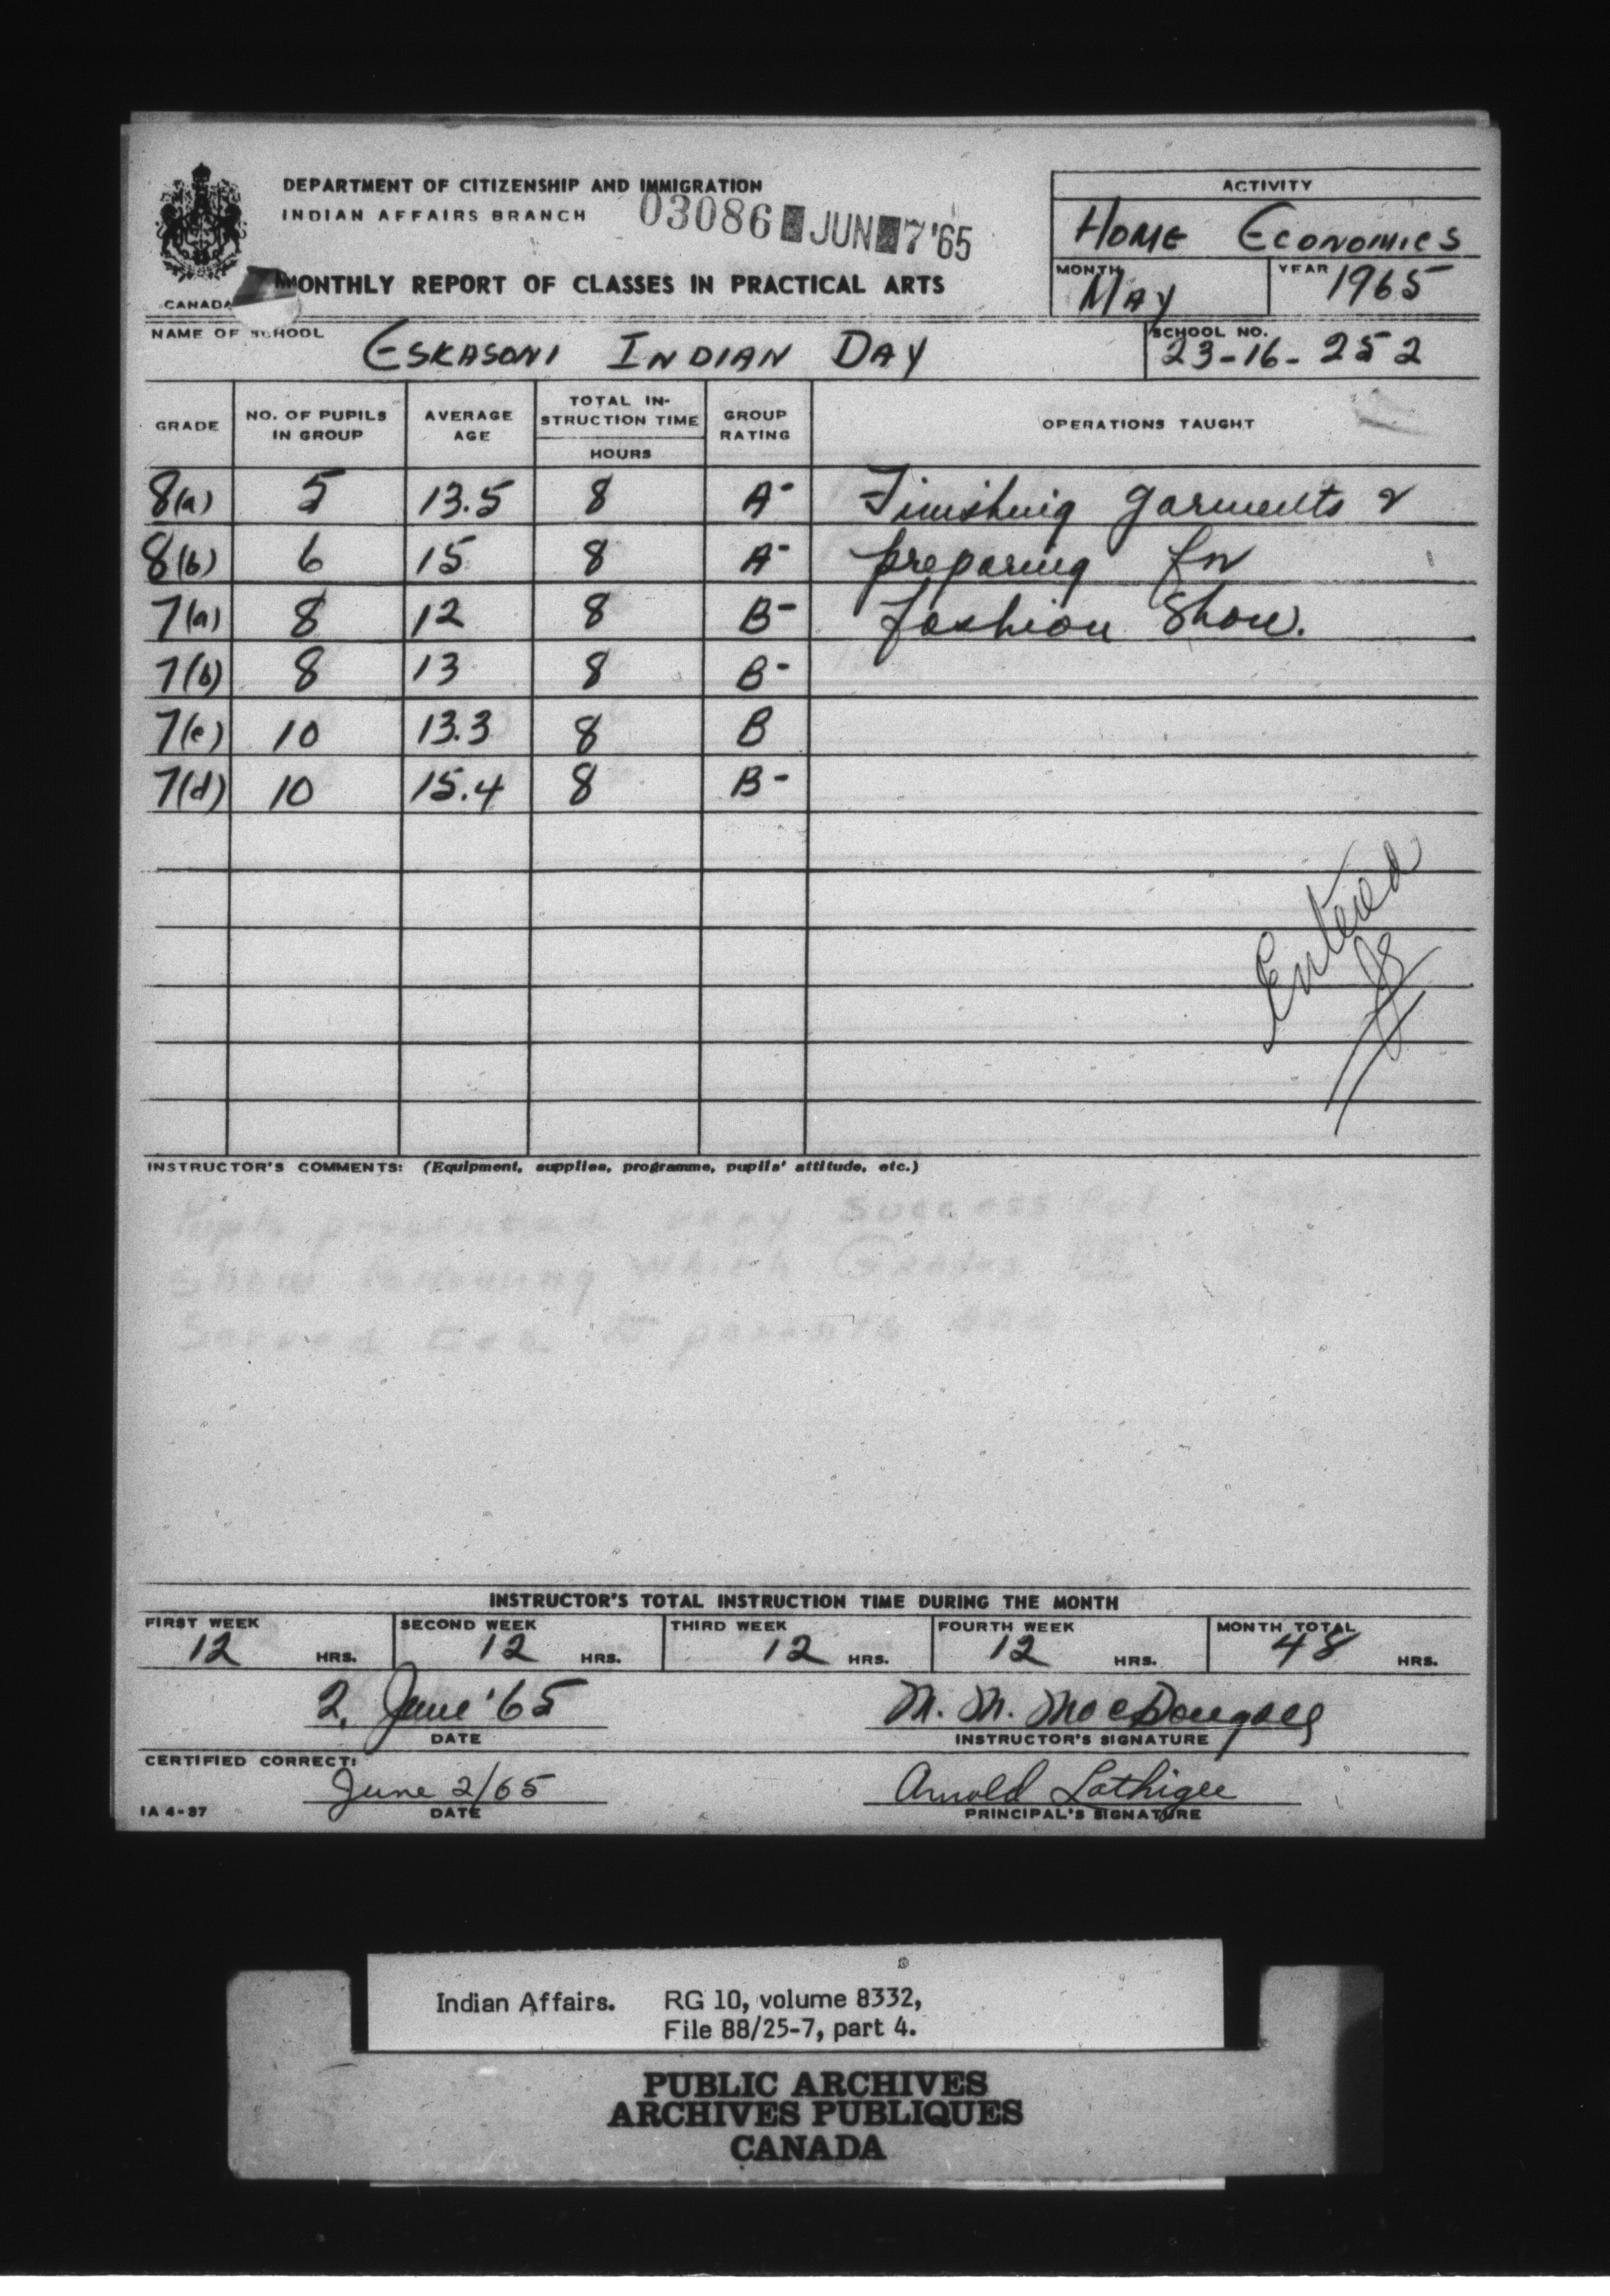 DEPARTMENT OF CITIZENSHIP AND IMMIGRATION
INDIAN AFFAIRS BRANCH
03086 JUN 7 '65
MONTHLY REPORT OF CLASSES IN PRACTICAL ARTS
CANADA
ACTIVITY
HOME ECONOMICS
MONTH MAY YEAR 1965
NAME OF SCHOOL ESKASONI INDIAN DAY
SCHOOL NO. 23-16-252
GRADE NO. OF PUPILS IN GROUP AVERAGE AGE TOTAL IN-STRUCTION TIME HOURS GROUP RATING OPERATIONS TAUGHT
8(a) 5 13.5 8 A- Finishing garments &
8(b) 6 15 8 A- preparing for
7(a) 8 12 8 B- fashion show.
7(b) 8 13 8 B-
7(c) 10 13.3 8 B
7(d) 10 15.4 8 B-
Entered
INSTRUCTOR'S COMMENTS: (Equipment, supplies, programme, pupils' attitude, etc.)
Pupils presented very successful
show following which Grades
served tea to parents and
INSTRUCTOR'S TOTAL INSTRUCTION TIME DURING THE MONTH
FIRST WEEK 12 HRS. SECOND WEEK 12 HRS. THIRD WEEK 12 HRS. FOURTH WEEK 12 HRS. MONTH TOTAL 48 HRS.
2. June '65 M. M. MacDougall
DATE INSTRUCTOR'S SIGNATURE
CERTIFIED CORRECT:
June 2/65 Arnold Lathigee
IA 4-37 DATE PRINCIPAL'S SIGNATURE
Indian Affairs. RG 10, volume 8332,
File 88/25-7, part 4.
PUBLIC ARCHIVES
ARCHIVES PUBLIQUES
CANADA